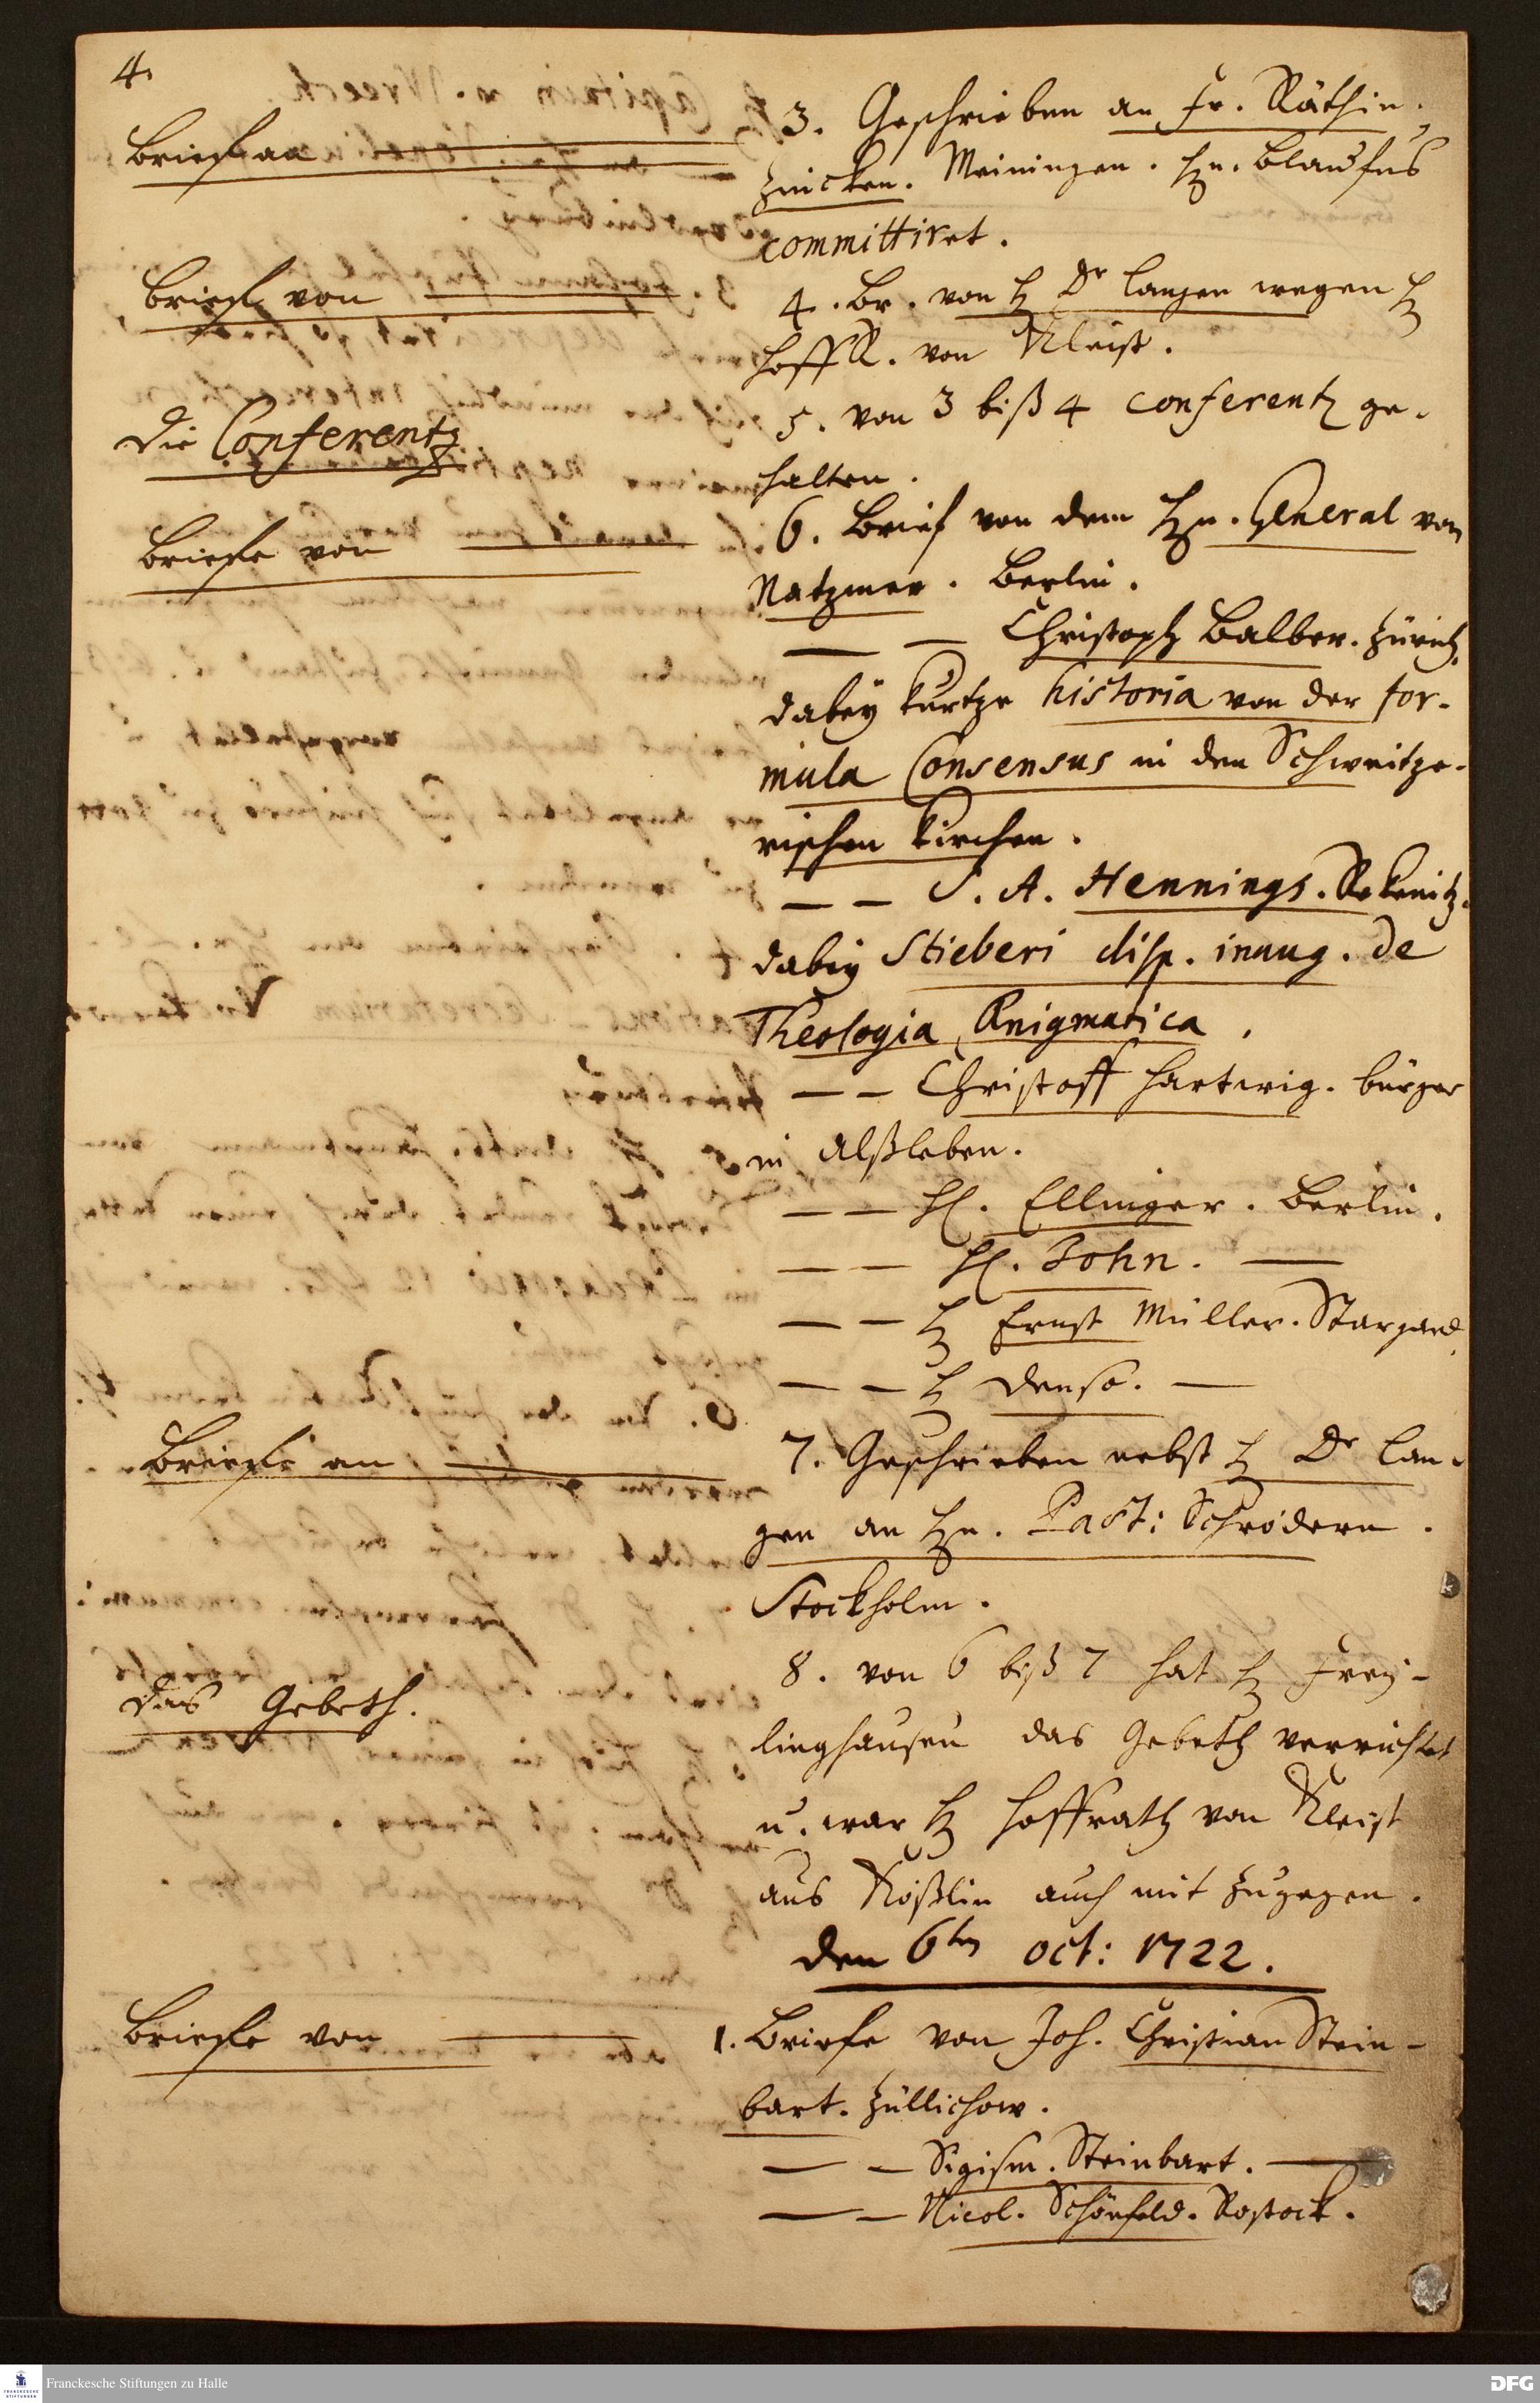 4.
Brief an
3. Geschrieben an Fr. Räthin
Zincken. Meiningen. Hn. Blaufus
committiret.
Briefe von
4. Br. von H Dr Langen wegen H
HoffR. von Kleist.
Die Conferentz
5. von 3 biß 4 conferentz ge-
halten.
Briefe von
6. Brief von dem Hn. General von
Natzmer. Berlin.
— — Christoph Balber. Zürich.
dabey kurtze historia von der for-
mula Consensus in den Schweitze-
rischen Kirchen.
— — S. A. Hennings. Rekenitz.
dabey Stieberi disp. inaug. de
Theologia Ænigmatica.
— — Christoff Hartwig. bürger
in Alßleben.
— — H. Ellinger. Berlin.
— — H. John. —
— — H Ernst Müller. Stargard
— — H Denso. —
Briefe an
7. Geschrieben nebst H Dr Lan-
gen an Hn. Past: Schrödern.
Stockholm.
Das Gebeth.
8. von 6 biß 7 hat H Frey-
linghausen das Gebeth verrichtet
u. war H Hoffrath von Kleist
aus Kößlin auch mit zugegen.
Den 6ten oct: 1722.
Briefe von
1. Briefe von Joh. Christian Stein-
bart. Züllichow.
— — Sigism. Steinbart. —
— — Nicol. Schönfeld. Rostock.
FRANCKESCHE STIFTUNGEN
Franckesche Stiftungen zu Halle
DFG